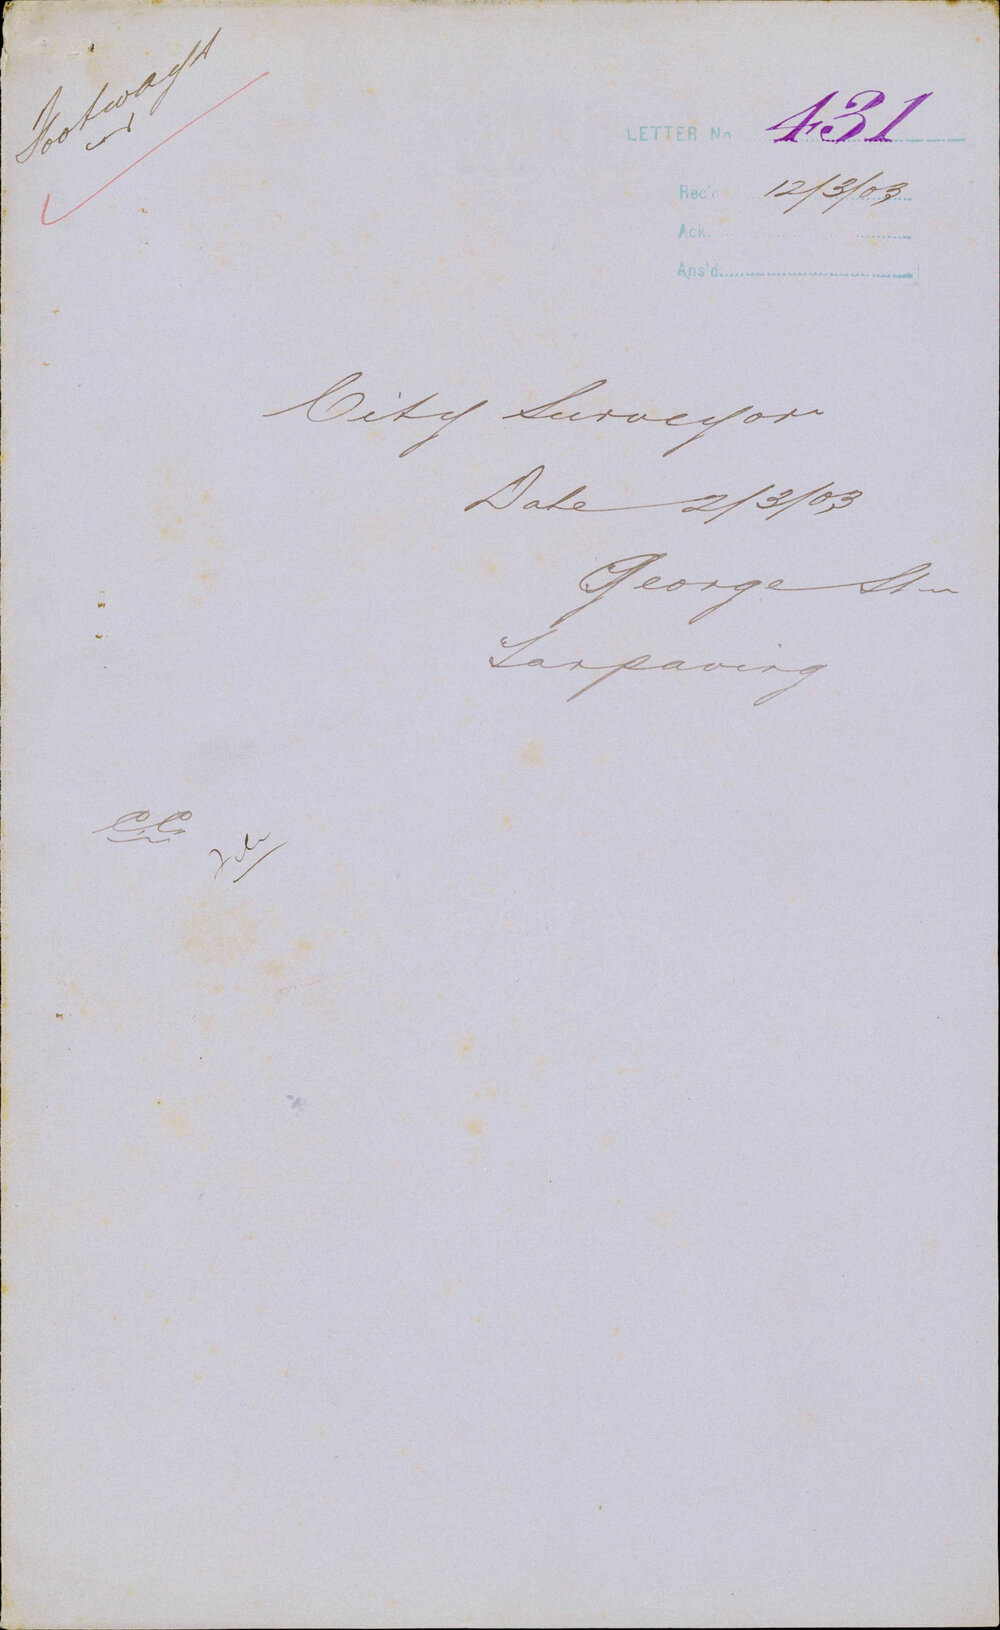 Footways
LETTER No 431
Rec'd 12/3/03
Ack.
Ans'd
City Surveyor
Date 2/3/03
George St
Tarpaving
C.C.
File